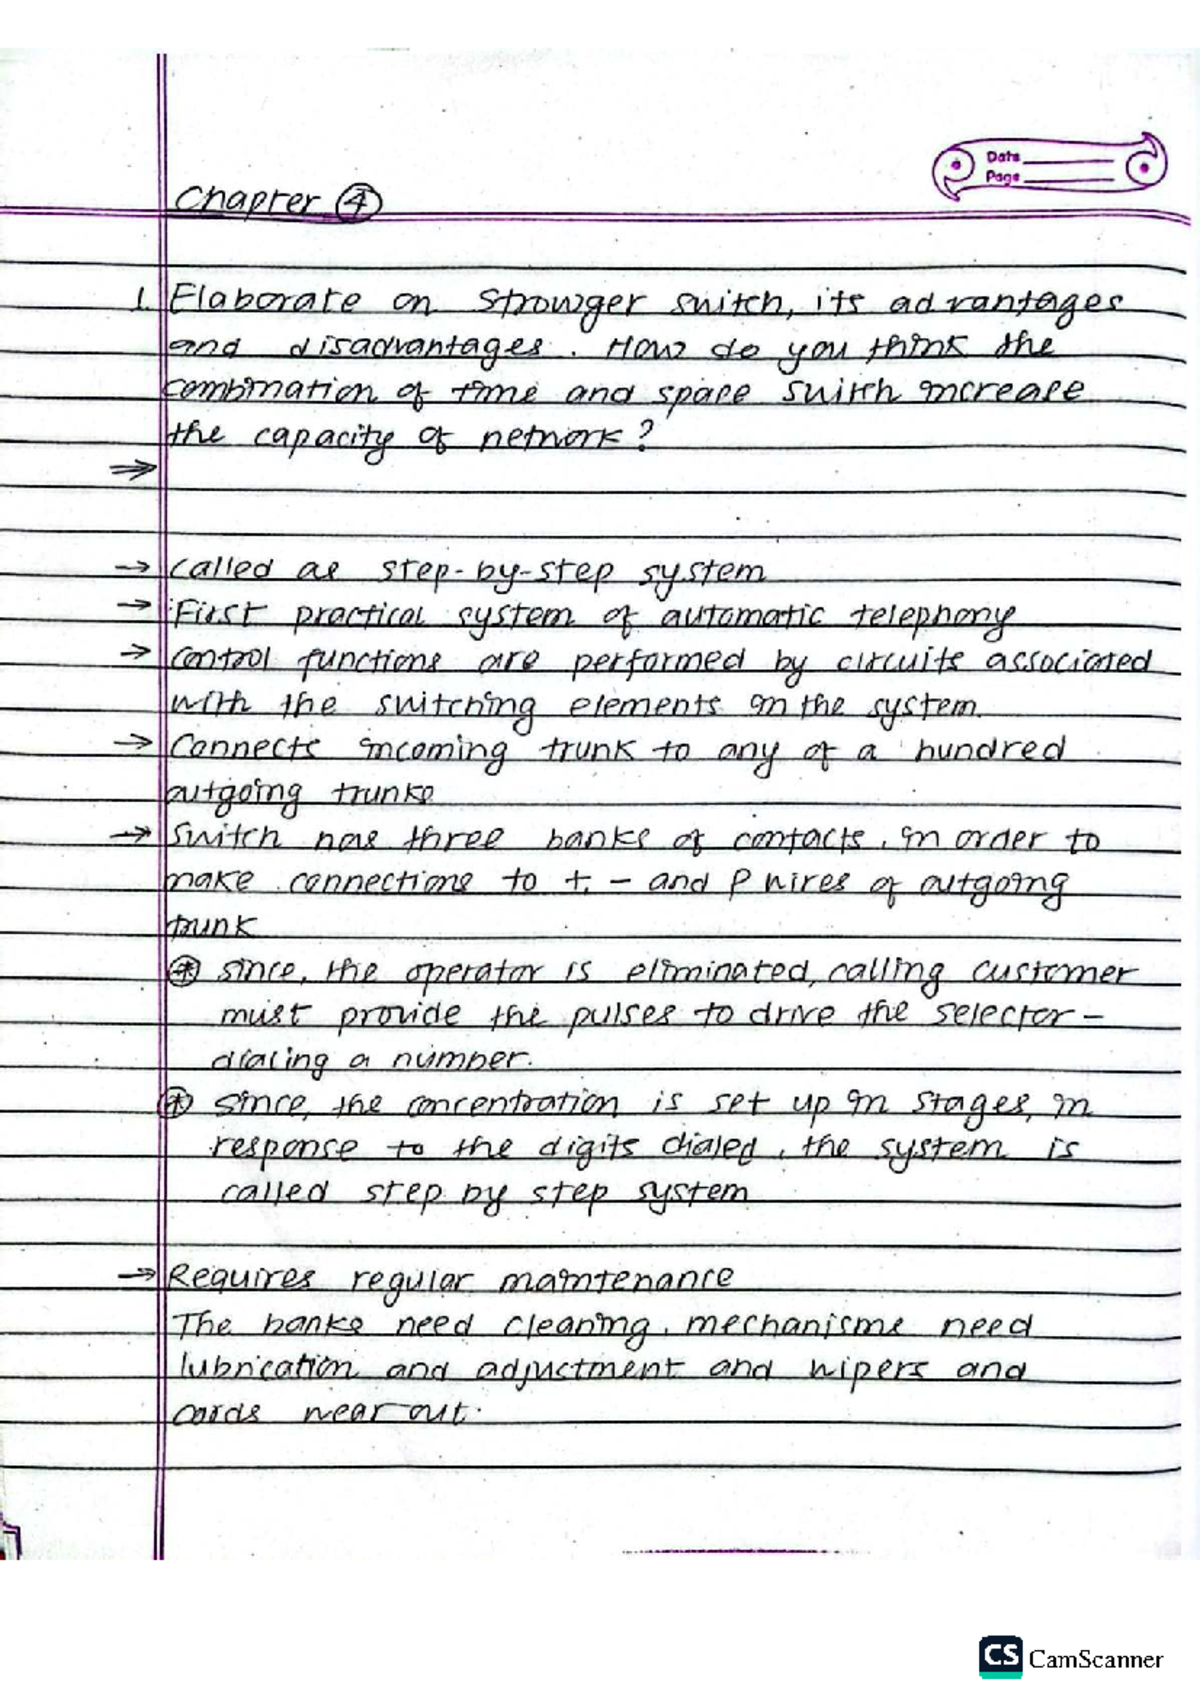 Date
Page
Chapter 4
1. Elaborate on Strowger switch, its advantages
and disadvantages. How do you think the
combination of time and space switch increase
the capacity of network?
⇒
→ Called as step-by-step system
→ First practical system of automatic telephony
→ Control functions are performed by circuits associated
with the switching elements in the system.
→ Connects incoming trunk to any of a hundred
outgoing trunks
→ Switch has three banks of contacts, in order to
make connections to +, - and P wires of outgoing
trunk
* since, the operator is eliminated, calling customer
must provide the pulses to drive the selector -
dialing a number.
* since, the concentration is set up in stages, in
response to the digits dialed, the system is
called step by step system
→ Requires regular maintenance
The banks need cleaning, mechanisms need
lubrication and adjustment and wipers and
cords wear out.
CS CamScanner